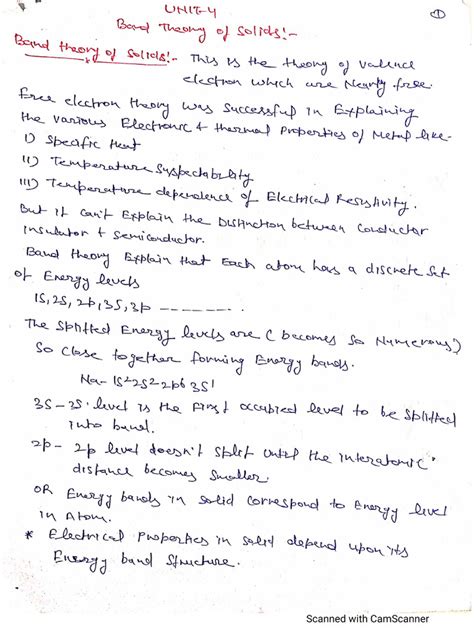 UNIT-4
①
Band Theory of Solids!-
Band theory of Solids!- This is the theory of valence
electron which are Nearly free.
Free electron theory was successful in Explaining
the various Electronic & thermal Properties of Metal like-
I) Specific Heat
II) Temperature Suspectability
III) Temperature dependence of Electrical Resistivity.
But it can't Explain the Distinction between Conductor
Insulator & Semiconductor.
Band theory Explain that Each atom has a discrete Set
of Energy levels
1S, 2S, 2p, 3S, 3p - - - - - - -
The Splitted Energy levels are (becomes so Numerous)
So Close together forming Energy bands.
Na- 1S²2S²2p6 3S¹
3S - 3S level is the First occupied level to be Splitted
into band.
2p - 2p level doesn't split until the interatomic
distance becomes Smaller.
OR Energy bands in Solid correspond to Energy level
in Atom.
* Electrical Properties in Solid depend upon its
Energy band Structure.
Scanned with CamScanner